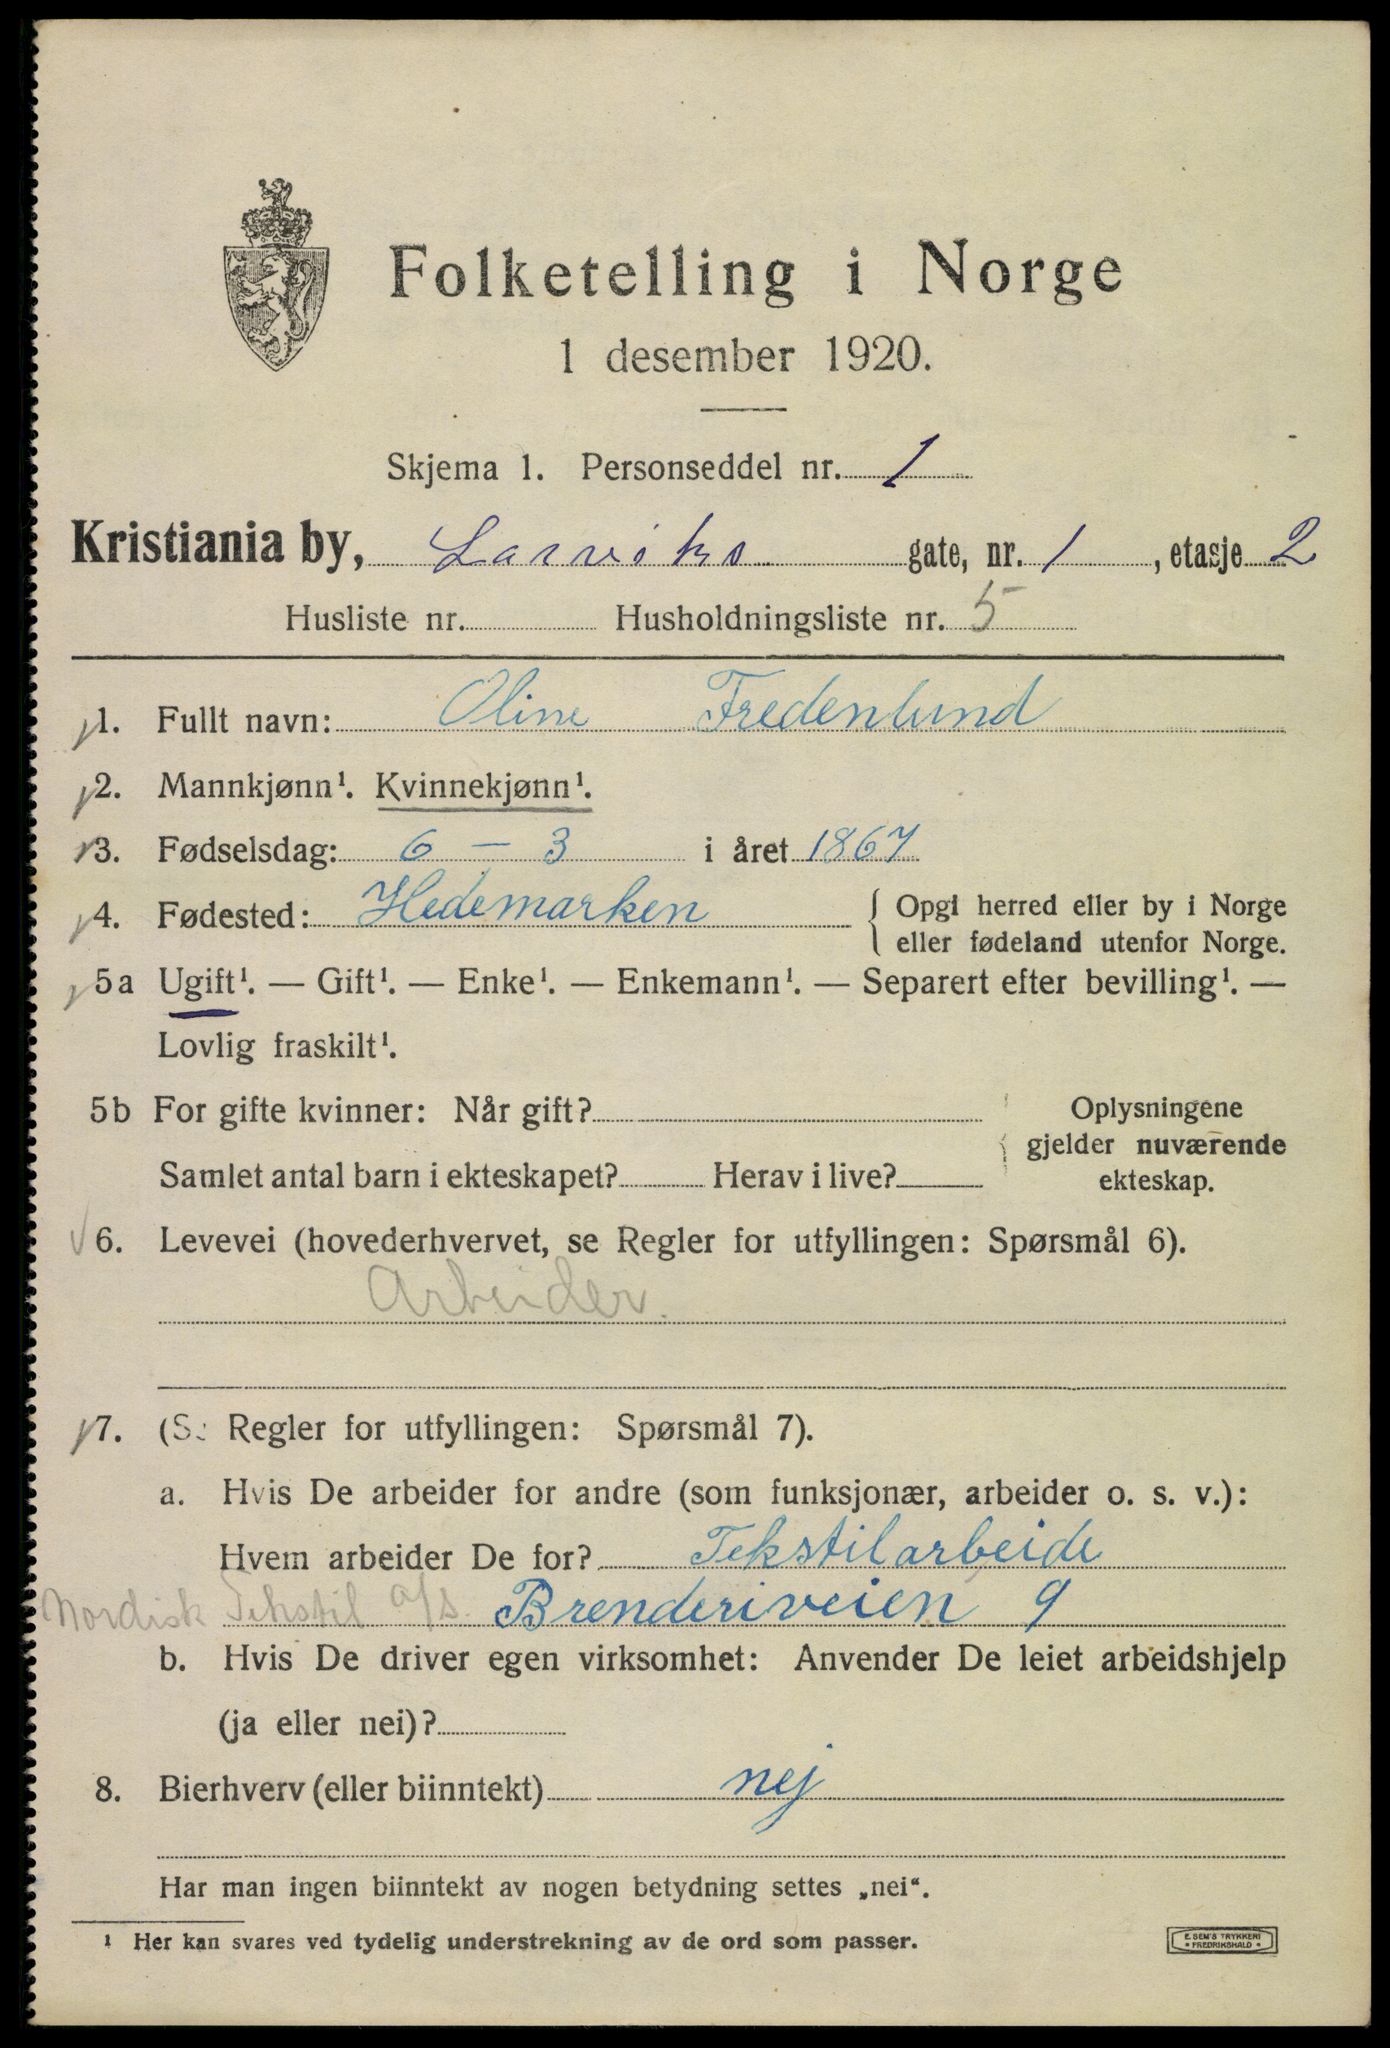 Folketelling i Norge
1 desember 1920.
Skjema 1. Personseddel nr. 1
Kristiania by, Larviks gate, nr. 1, etasje 2
Husliste nr. Husholdningsliste nr. 5
1. Fullt navn: Oline Fredenlund
2. Mannkjønn¹. Kvinnekjønn¹.
3. Fødselsdag: 6 - 3 i året 1867
4. Fødested: Hedemarken { Opgi herred eller by i Norge
eller fødeland utenfor Norge.
5a Ugift¹. — Gift¹. — Enke¹. — Enkemann¹. — Separert efter bevilling¹. —
Lovlig fraskilt¹.
5b For gifte kvinner: Når gift? Oplysningene
gjelder nuværende
Samlet antal barn i ekteskapet? Herav i live? ekteskap.
6. Levevei (hovederhvervet, se Regler for utfyllingen: Spørsmål 6).
Arbeider.
7. (Se Regler for utfyllingen: Spørsmål 7).
a. Hvis De arbeider for andre (som funksjonær, arbeider o. s. v.):
Hvem arbeider De for? Tekstilarbeide
Nordisk Tekstil a/s. Brenderiveien 9
b. Hvis De driver egen virksomhet: Anvender De leiet arbeidshjelp
(ja eller nei)?
8. Bierhverv (eller biinntekt) nej
Har man ingen biinntekt av nogen betydning settes „nei“.
¹ Her kan svares ved tydelig understrekning av de ord som passer.
E. SEM'S TRYKKERI
• FREDRIKSHALD •